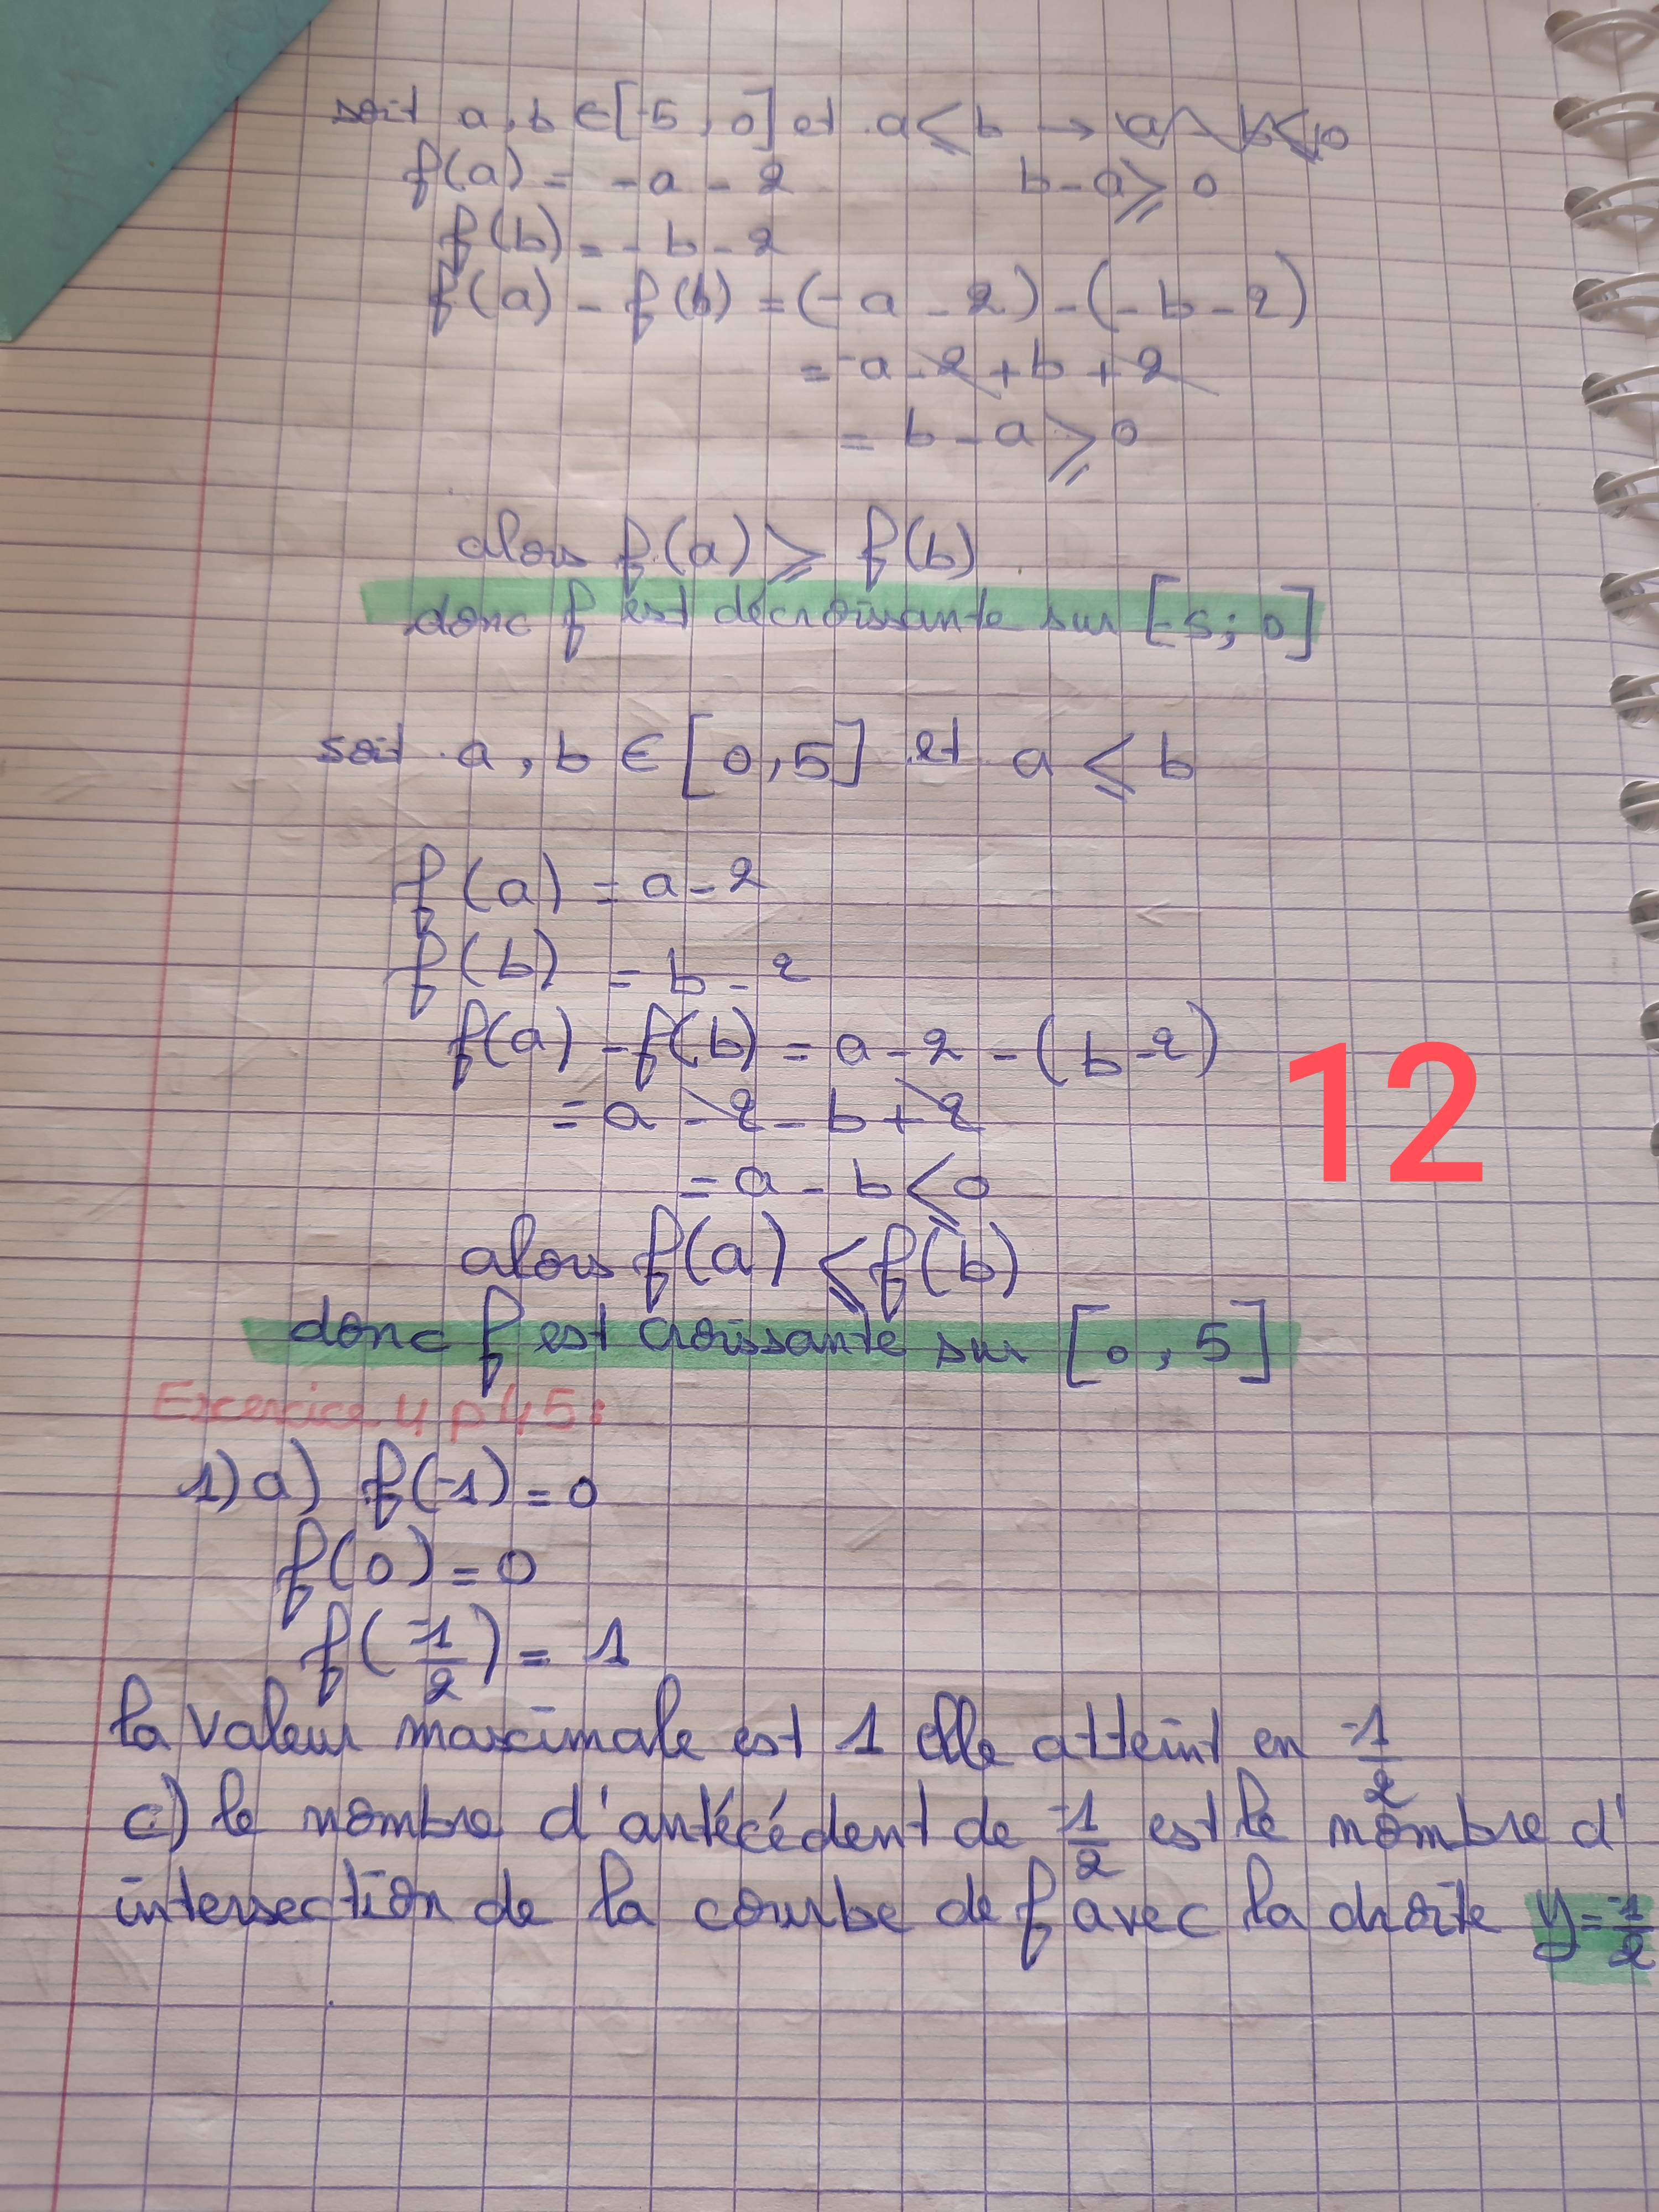 soit a, b ∈ [-5, 0] et a ≤ b →
f(a) = -a - 2 b - a ≥ 0
f(b) = - b - 2
f(a) - f(b) = (-a - 2) - (- b - 2)
= -a - 2 + b + 2
= b - a ≥ 0
alors f(a) ≥ f(b)
donc f est décroissante sur [-5; 0]
soit a, b ∈ [0, 5] et a ≤ b
f(a) = a - 2
f(b) = b - 2
f(a) - f(b) = a - 2 - (b - 2)
= a - 2 - b + 2
12
= a - b ≤ 0
alors f(a) ≤ f(b)
donc f est croissante sur [0, 5]
Excercice 4 p 45:
1) a) f(-1) = 0
f(0) = 0
f(-1/2) = 1
la valeur maximale est 1 elle atteint en -1/2
c) le nombre d'antécédent de -1/2 est le nombre d'
intersection de la courbe de f avec la droite y = -1/2